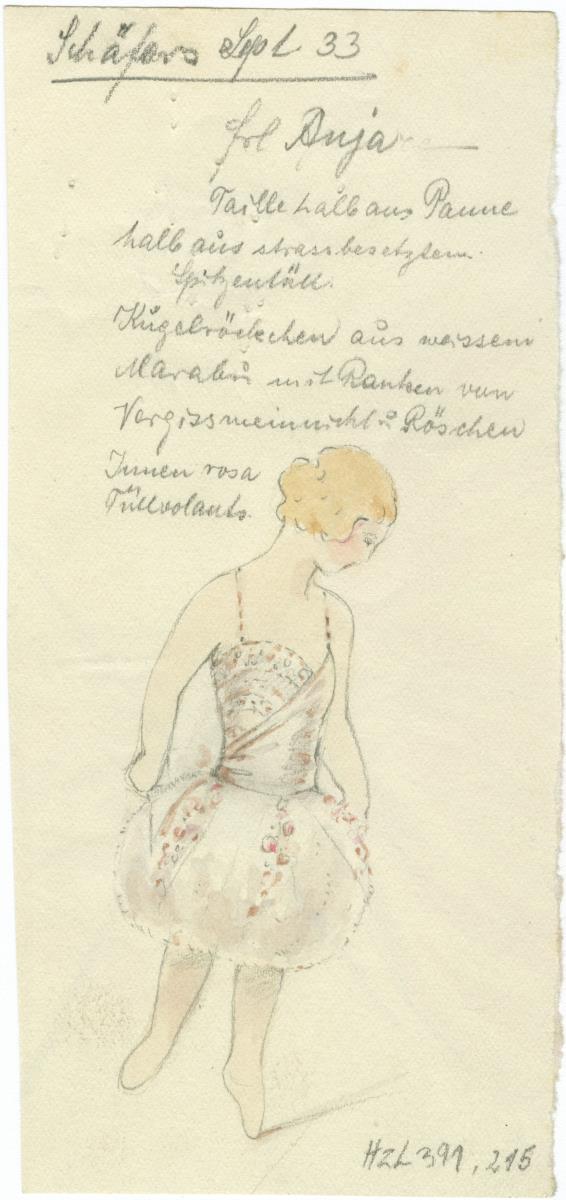 Schäfers Sept 33
Frl Anja
Taille halb aus Panne
halb aus strassbesetztem
Spitzentüll.
Kugelröckchen aus weissem
Marabu mit Ranken von
Vergissmeinnicht u Röschen
Innen rosa
Tüllvolants.
HzL 391, 215